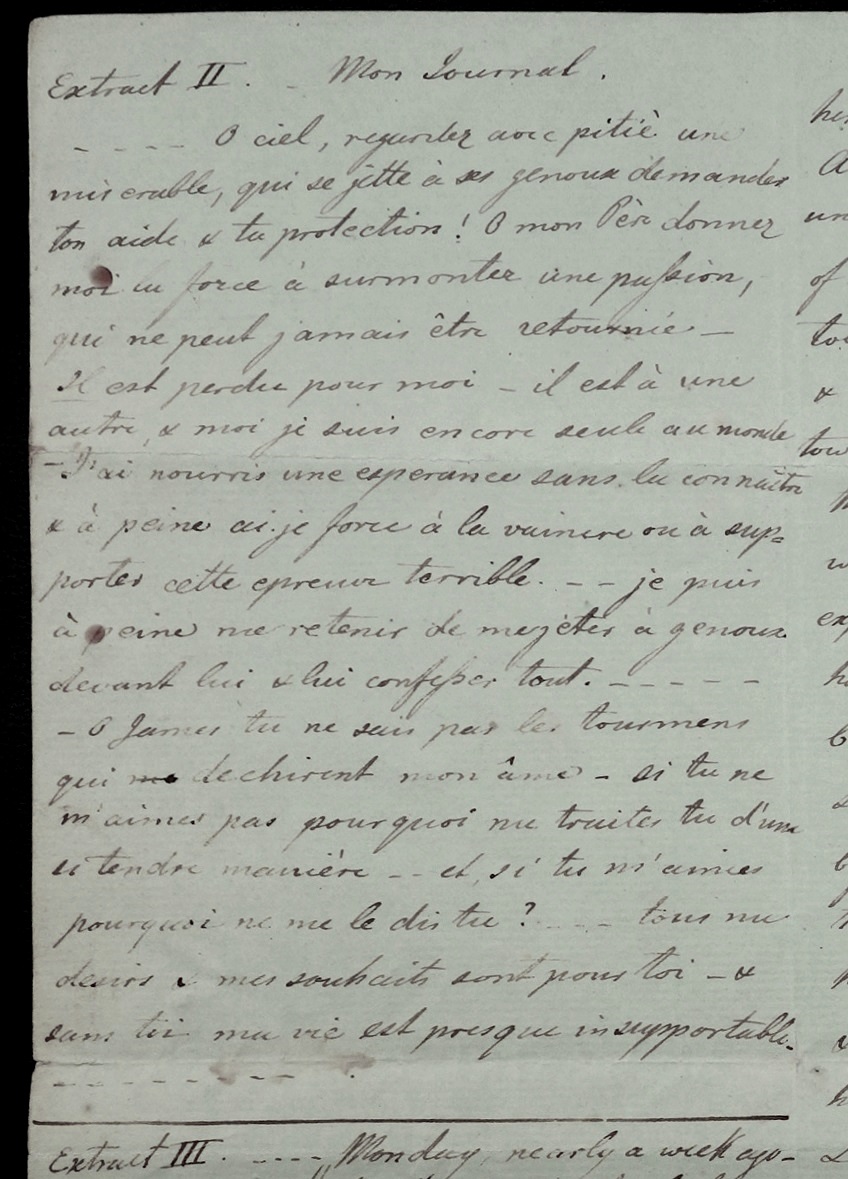 Extract II. - Mon Journal.
- - - - O ciel, regardez avec pitiè une
miserable, qui se jette à ses genoux demander
ton aide & ta protection! O mon Père donnez
moi la force à surmonter une passion,
qui ne peut jamais être retournée -
Il est perdu pour moi - il est à une
autre, & moi je suis encore seule au monde
- J'ai nourris une esperance sans la connaître
& à peine ai-je force à la vaincre ou à sup=
porter cette epreuve terrible. - - je puis
à peine me retenir de me jèter à genoux
devant lui & lui confesser tout. - - - - -
- O James tu ne sais pas les tourmens
qui me dechirent mon âme - si tu ne
m'aimes pas pourquoi me traites tu d'une
si tendre manière - - et, si tu m'aimes
pourquoi ne me le dis tu? - - - tous me
desirs & mes souhaits sont pour toi - &
sans toi ma vie est presque insupportable.
- - - - - - - - .
Extract III. - - - - "Monday, nearly a week ago -